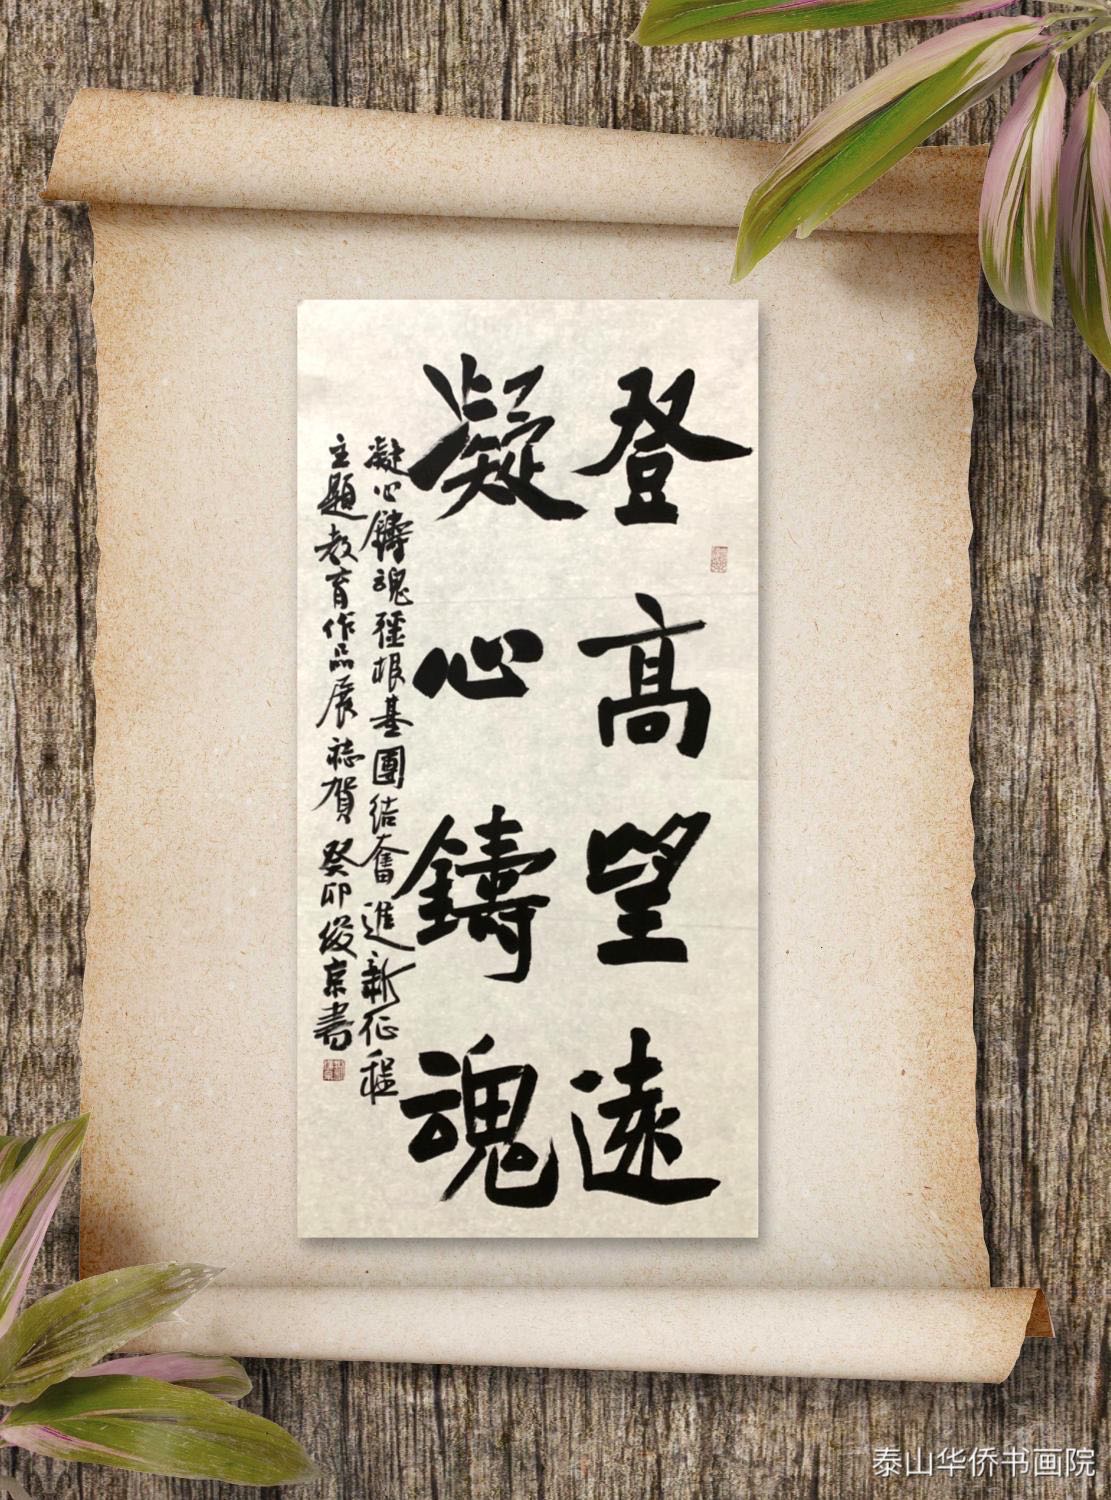 登高望遠
凝心鑄魂
凝心鑄魂強根基團結奮進新征程
主題教育作品展誌賀 癸卯俊京書
泰山华侨书画院